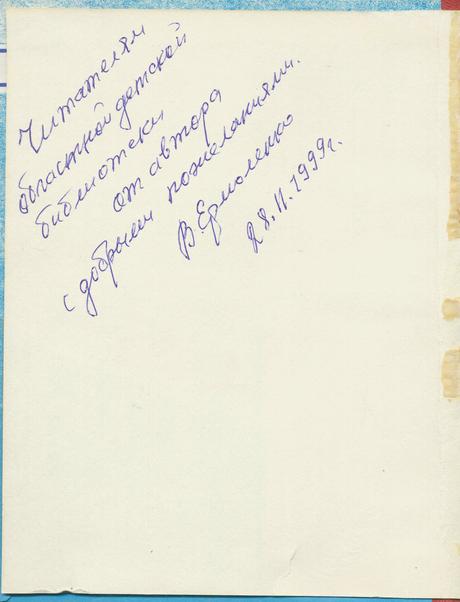 Читателям
областной детской
библиотеки
от автора
с добрыми пожеланиями.
В. Ермоленко
28.11.1999г.